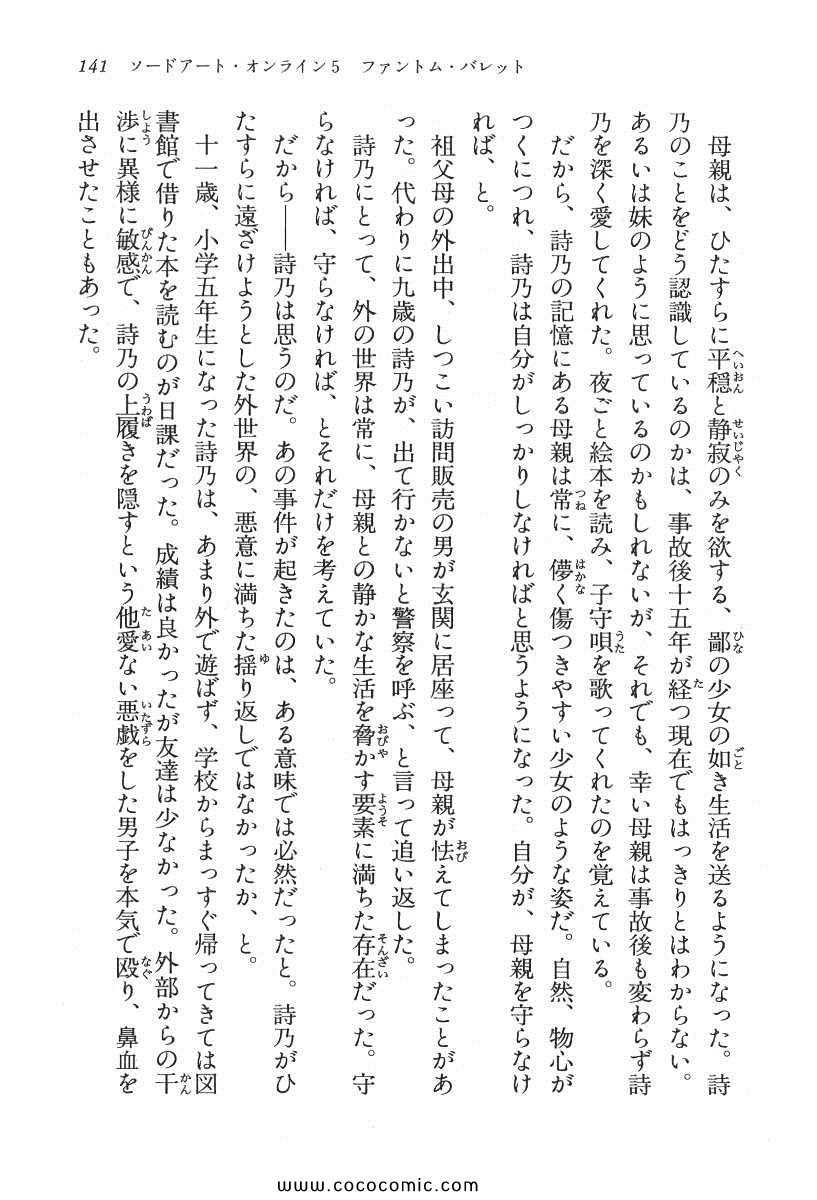 141 ソードアート・オンライン5 ファントム・バレット
母親は、ひたすらに平穏と静寂のみを欲する、鄙の少女の如き生活を送るようになった。詩
乃のことをどう認識しているのかは、事故後十五年が経つ現在でもはっきりとはわからない。
あるいは妹のように思っているのかもしれないが、それでも、幸い母親は事故後も変わらず詩
乃を深く愛してくれた。夜ごと絵本を読み、子守唄を歌ってくれたのを覚えている。
だから、詩乃の記憶にある母親は常に、儚く傷つきやすい少女のような姿だ。自然、物心が
つくにつれ、詩乃は自分がしっかりしなければと思うようになった。自分が、母親を守らなけ
れば、と。
祖父母の外出中、しつこい訪問販売の男が玄関に居座って、母親が怯えてしまったことがあ
った。代わりに九歳の詩乃が、出て行かないと警察を呼ぶ、と言って追い返した。
詩乃にとって、外の世界は常に、母親との静かな生活を脅かす要素に満ちた存在だった。守
らなければ、守らなければ、とそれだけを考えていた。
だから――詩乃は思うのだ。あの事件が起きたのは、ある意味では必然だったと。詩乃がひ
たすらに遠ざけようとした外世界の、悪意に満ちた揺り返しではなかったか、と。
十一歳、小学五年生になった詩乃は、あまり外で遊ばず、学校からまっすぐ帰ってきては図
書館で借りた本を読むのが日課だった。成績は良かったが友達は少なかった。外部からの干
渉に異様に敏感で、詩乃の上履きを隠すという他愛ない悪戯をした男子を本気で殴り、鼻血を
出させたこともあった。
www.cococomic.com